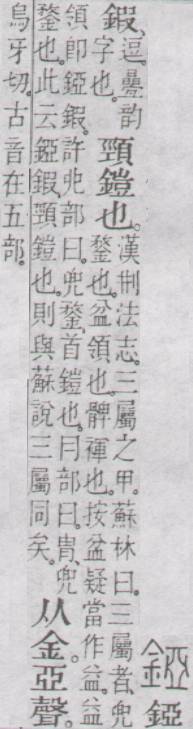 錏
鍜、逗。疊韵字也。頸鎧也。漢刑法志。三屬之甲。蘇林曰。三屬者、兜鍪也。盆領也。髀褌也。按盆疑當作益。益
領卽錏鍜。許𠑹部曰。兜鍪、首鎧也。冃部曰。冑、兜鍪也。此云錏鍜頸鎧也。則與蘇說三屬同矣。从金。亞聲。
烏牙切。古音在五部。